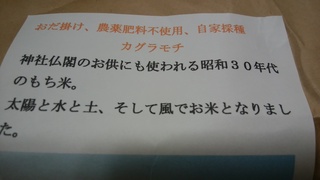 おだ掛け、農薬肥料不使用、自家採種
カグラモチ
神社仏閣のお供にも使われる昭和３０年代
のもち米。
太陽と水と土、そして風でお米となりまし
た。